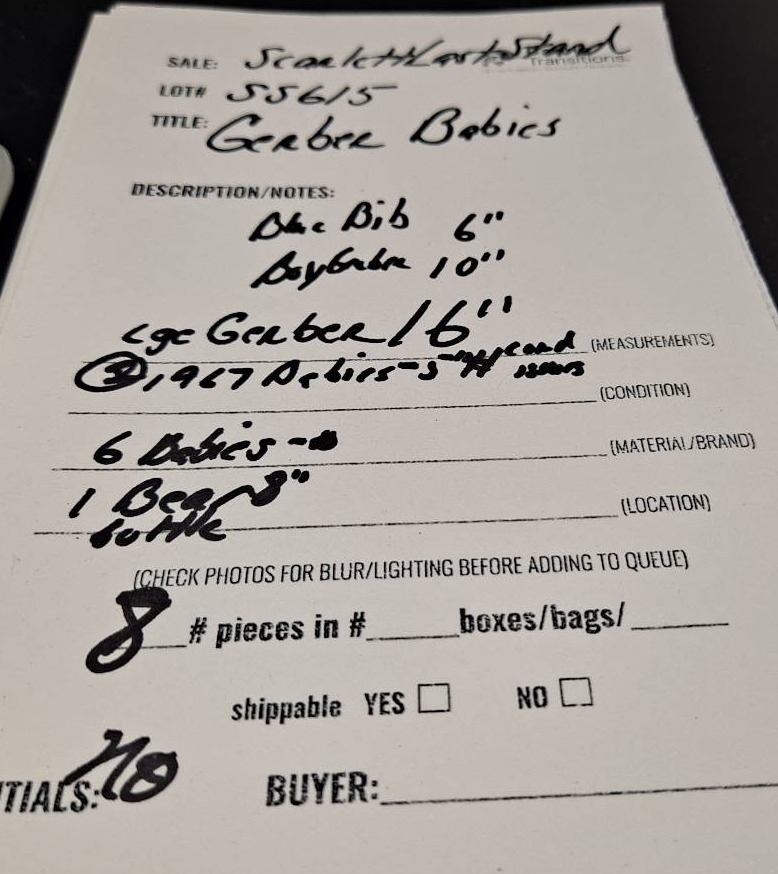 SALE: Scarlett Last Stand
Transitions
LOT# SS615
TITLE: Gerber Babies
DESCRIPTION/NOTES:
Blue Bib 6"
Boy Gerber 10"
Lge Gerber 16"
(MEASUREMENTS)
③ 1967 Babies - 5"
(CONDITION)
6 Babies -
(MATERIAL/BRAND)
1 Bear 8"
bottle
(LOCATION)
(CHECK PHOTOS FOR BLUR/LIGHTING BEFORE ADDING TO QUEUE)
8 # pieces in #____ boxes/bags/____
shippable YES □ NO □
TIALS: BUYER: